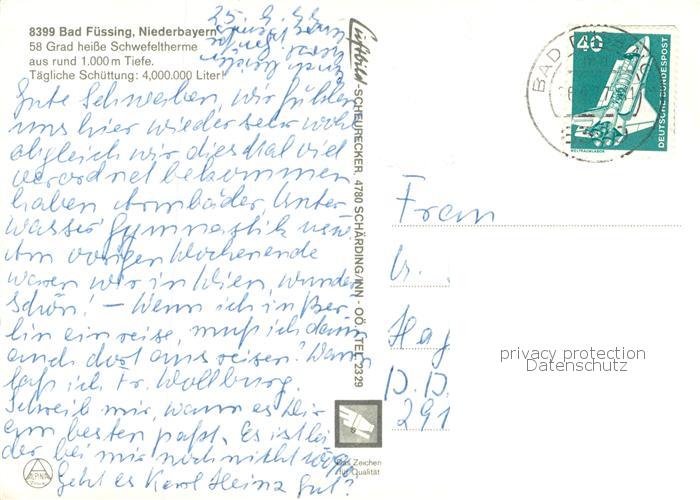 8399 Bad Füssing, Niederbayern
58 Grad heiße Schwefeltherme
aus rund 1.000 m Tiefe.
Tägliche Schüttung: 4,000.000 Liter!
Gute Schwerben, wir fühlen
uns hier wieder sehr wohl
obgleich wir dies Mal viel
verordnet bekommen
haben Armbäder, Unter
wasser Gymnastik usw
Am vorigen Wochenende
waren wir in Wien, wunder
schön! – Wenn ich in Ber-
lin einreise, muß ich dann
auch dort ausreisen? Dann
laß ich Fr. Wollburg.
Schreib mir, wann es Dir
am besten paßt. Es ist lei
der bei mir noch nicht
Geht es Karl Heinz gut?
Luftbild-SCHEURECKER, 4780 SCHÄRDING/INN - OÖ, TEL. 2329
Das Zeichen
für Qualität
ALPINA
BAD
40
DEUTSCHE BUNDESPOST
WELTRAUMLABOR
Frau
Hag
D.D.
291
privacy protection
Datenschutz